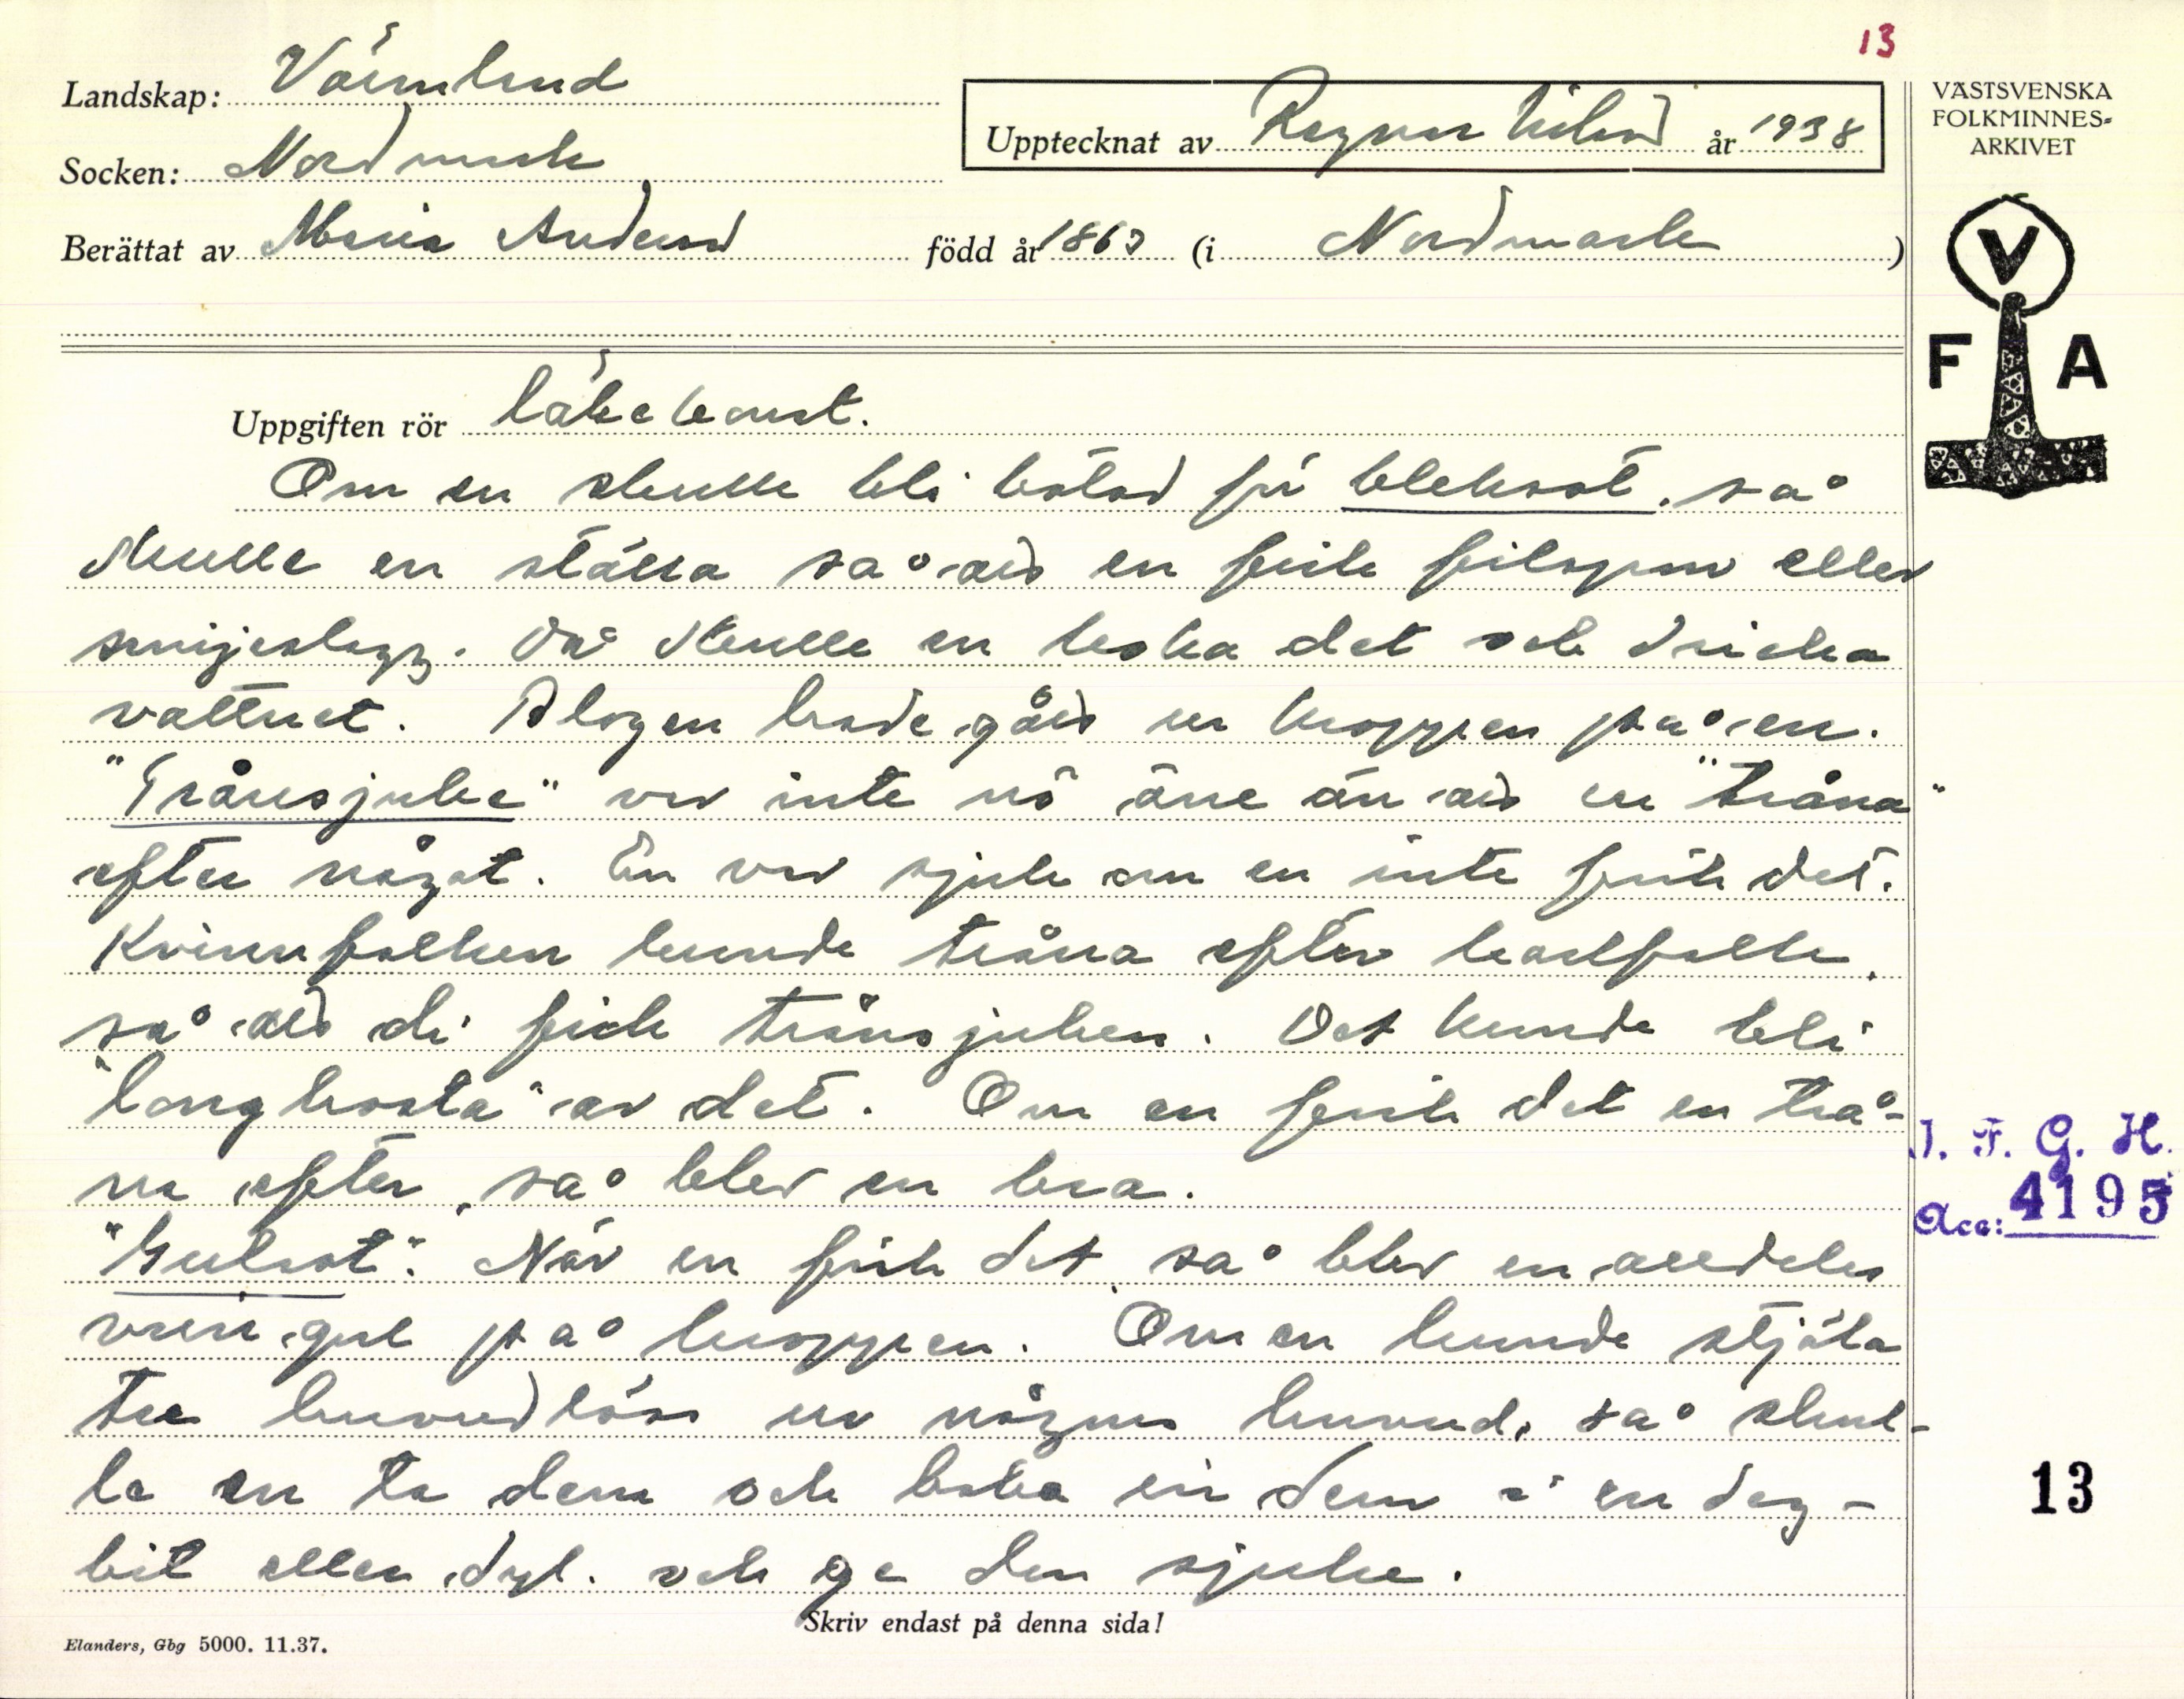 13
Landskap: Värmland
Socken: Nordmark
Upptecknat av Ragnar Nilsson år 1938
Berättat av Maria Anderson född år 1863 (i Nordmark)
VÄSTSVENSKA
FOLKMINNES-
ARKIVET
V
F A
Uppgiften rör läkekonst.
Om en skulle bli botad för bleksot, så
skulle en ställa så att en fick filspån eller
smijeslagg. Då skulle en koka det och dricka
vattnet. Blogen hade gått ur kroppen på en.
"Trånsjuke" var inte nö äne än att en "tråna"
efter något. En var sjuk om en inte fick det.
Kvinnfolken kunde tråna efter karlfolk,
så att di fick trånsjuken. Det kunde bli
"langhosta" av det. Om en fick det en trå-
na efter, så blev en bra.
"Gulsot". När en fick det, så blev en alldeles
ren gul på kroppen. Om en kunde stjäla
tre huvudlöss ur någons huvud, så skul-
le en ta dem och baka in dem i en deg-
bit eller dyl. och ge den sjuke.
I. F. G. H.
Acc: 4195
13
Skriv endast på denna sida!
Elanders, Gbg 5000. 11.37.